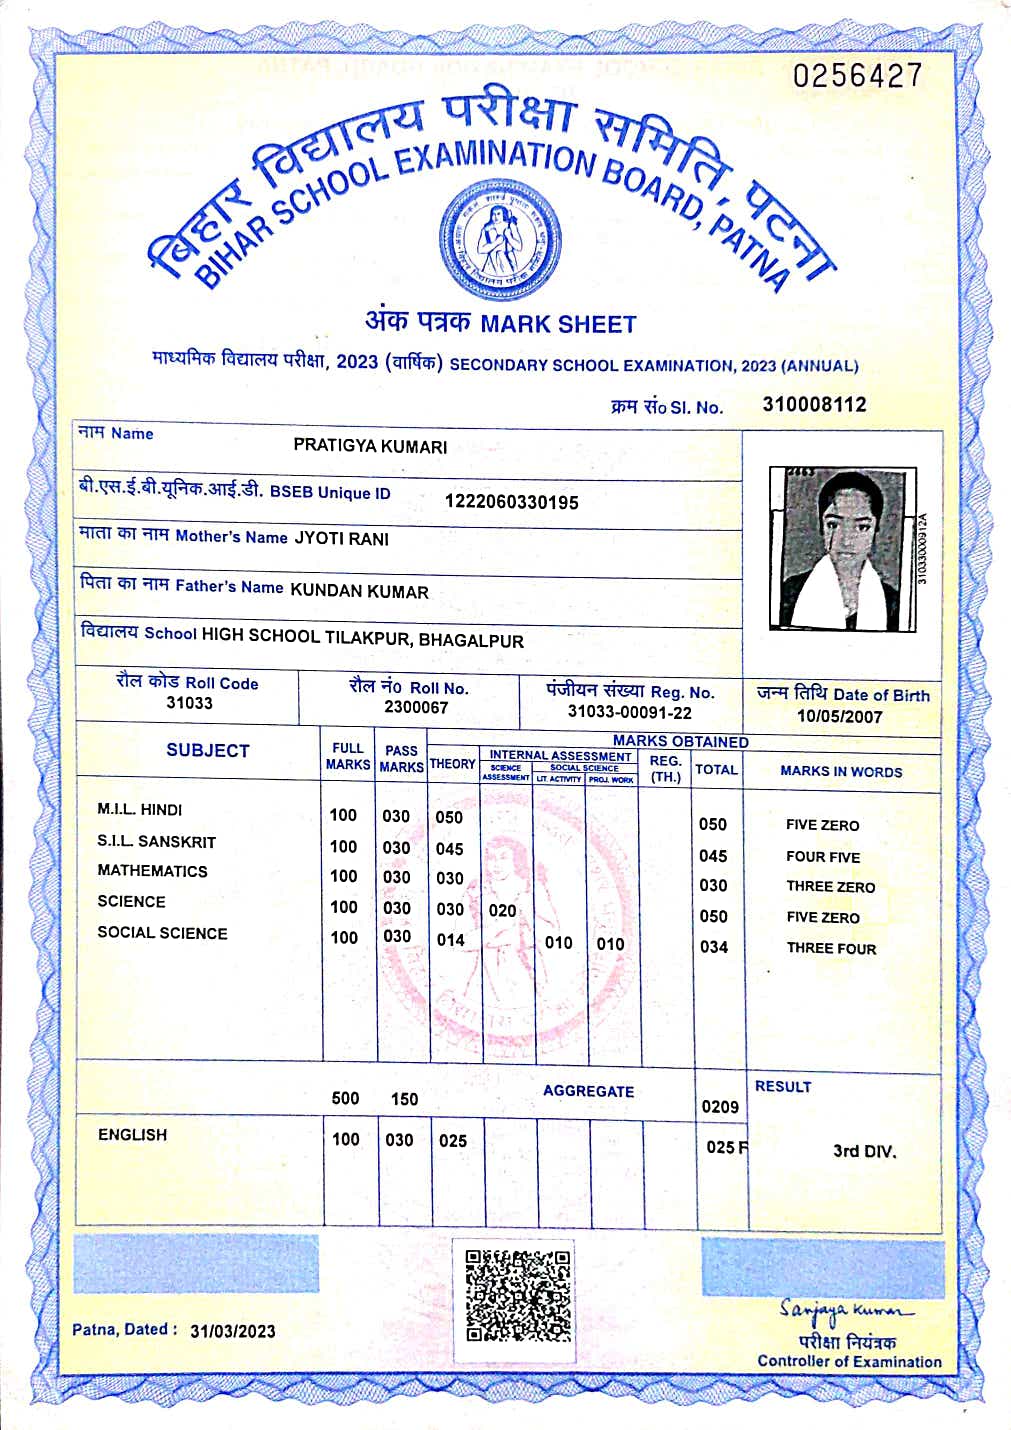 0256427
बिहार विद्यालय परीक्षा समिति, पटना
BIHAR SCHOOL EXAMINATION BOARD, PATNA
अंक पत्रक MARK SHEET
माध्यमिक विद्यालय परीक्षा, 2023 (वार्षिक) SECONDARY SCHOOL EXAMINATION, 2023 (ANNUAL)
क्रम सं० Sl. No. 310008112
नाम Name PRATIGYA KUMARI
बी.एस.ई.बी.यूनिक.आई.डी. BSEB Unique ID 1222060330195
माता का नाम Mother's Name JYOTI RANI
पिता का नाम Father's Name KUNDAN KUMAR
विद्यालय School HIGH SCHOOL TILAKPUR, BHAGALPUR
310330000912A
रौल कोड Roll Code रौल नं० Roll No. पंजीयन संख्या Reg. No. जन्म तिथि Date of Birth
31033 2300067 31033-00091-22 10/05/2007
SUBJECT FULL MARKS PASS MARKS MARKS OBTAINED
THEORY INTERNAL ASSESSMENT REG. (TH.) TOTAL MARKS IN WORDS
SCIENCE ASSESSMENT SOCIAL SCIENCE
LIT. ACTIVITY PROJ. WORK
M.I.L. HINDI 100 030 050 050 FIVE ZERO
S.I.L. SANSKRIT 100 030 045 045 FOUR FIVE
MATHEMATICS 100 030 030 030 THREE ZERO
SCIENCE 100 030 030 020 050 FIVE ZERO
SOCIAL SCIENCE 100 030 014 010 010 034 THREE FOUR
500 150 AGGREGATE 0209 RESULT
ENGLISH 100 030 025 025 F 3rd DIV.
Patna, Dated : 31/03/2023
Sanjaya Kumar
परीक्षा नियंत्रक
Controller of Examination